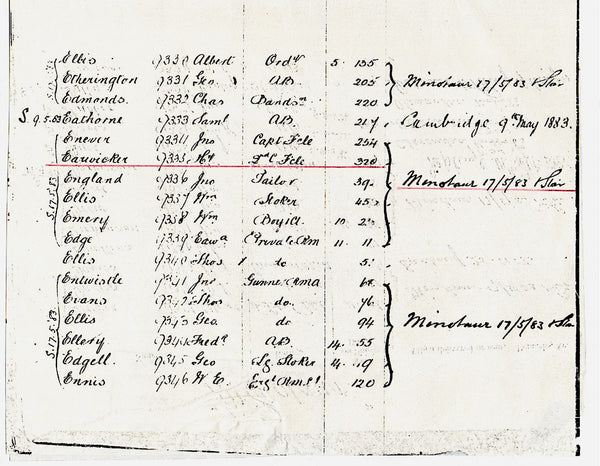 Ellis 9330 Albert Ordy 5. 155
Etherington 9331 Geo AB 205 Minotaur 17/5/83 & Star
Edmonds. 9332 Chas Bandsn 220
S. 9.5.83 Eathorne 9333 Saml AB. 217 Cambridge 9th May 1883.
Enever 9334 Jno Capt Fcle 254
Earwicker 9335 Hy 2d C Fcle 320
S.17.5.83 England 9336 Jno Tailor 39. Minotaur 17/5/83 & Star
Ellis 9337 Wm Stoker 45.
Emery 9338 Wm Boy 1C 10. 2.
Edge 9339 Edwd Private RM 11. 11
Ellis 9340 Thos do 5.
Entwistle 9341 Jno Gunner RMA 68
Evans 9342 Thos do. 76
S.17.5.83 Ellis 9343 Geo do 94 Minotaur 17/5/83 & Star
Ellery 9344 Fredk AB 14. 55
Edgell. 9345 Geo Lg. Stoker 14. 19
Ennis 9346 W E. 120